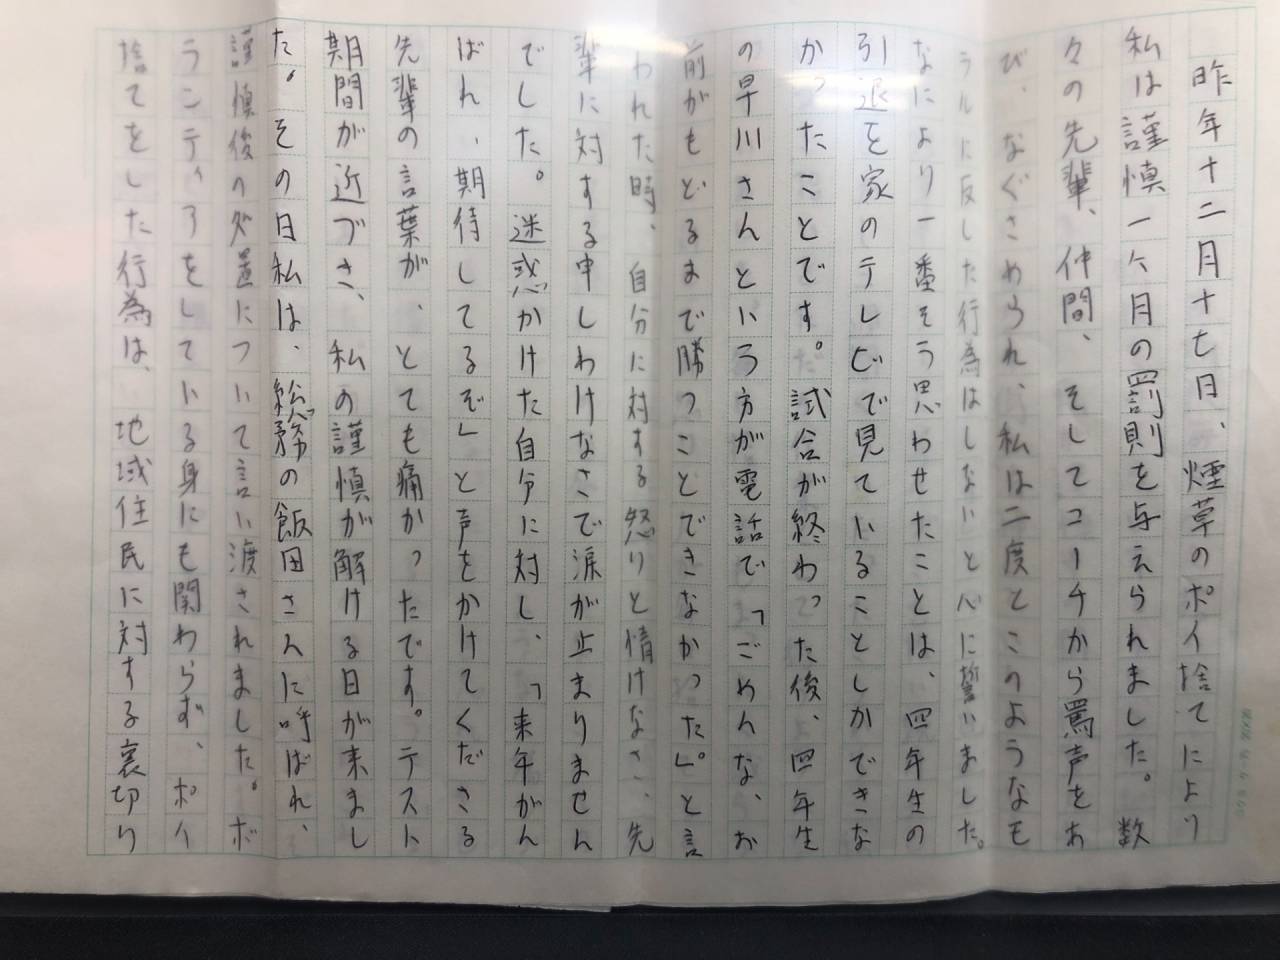 昨年十二月十七日、煙草のポイ捨てにより
私は謹慎一ヶ月の罰則を与えられました。数
々の先輩、仲間、そしてコーチから罵声をあ
び、なぐさめられ、私は二度とこのようなモ
ラルに反した行為はしないと心に誓いました。
なにより一番そう思わせたことは、四年生の
引退を家のテレビで見ていることしかできな
かったことです。試合が終わった後、四年生
の早川さんという方が電話で「ごめんな、お
前がもどるまで勝つことできなかった」。と言
われた時、自分に対する怒りと情けなさ、先
輩に対する申しわけなさで涙が止まりません
でした。迷惑かけた自分に対し、「来年がん
ばれ、期待してるぞ」と声をかけてくださる
先輩の言葉が、とても痛かったです。テスト
期間が近づき、私の謹慎が解ける日が来まし
た。その日私は、総務の飯田さんに呼ばれ、
謹慎後の処置について言い渡されました。ボ
ランティアをしている身にも関わらず、ポイ
捨てをした行為は、地域住民に対する裏切り